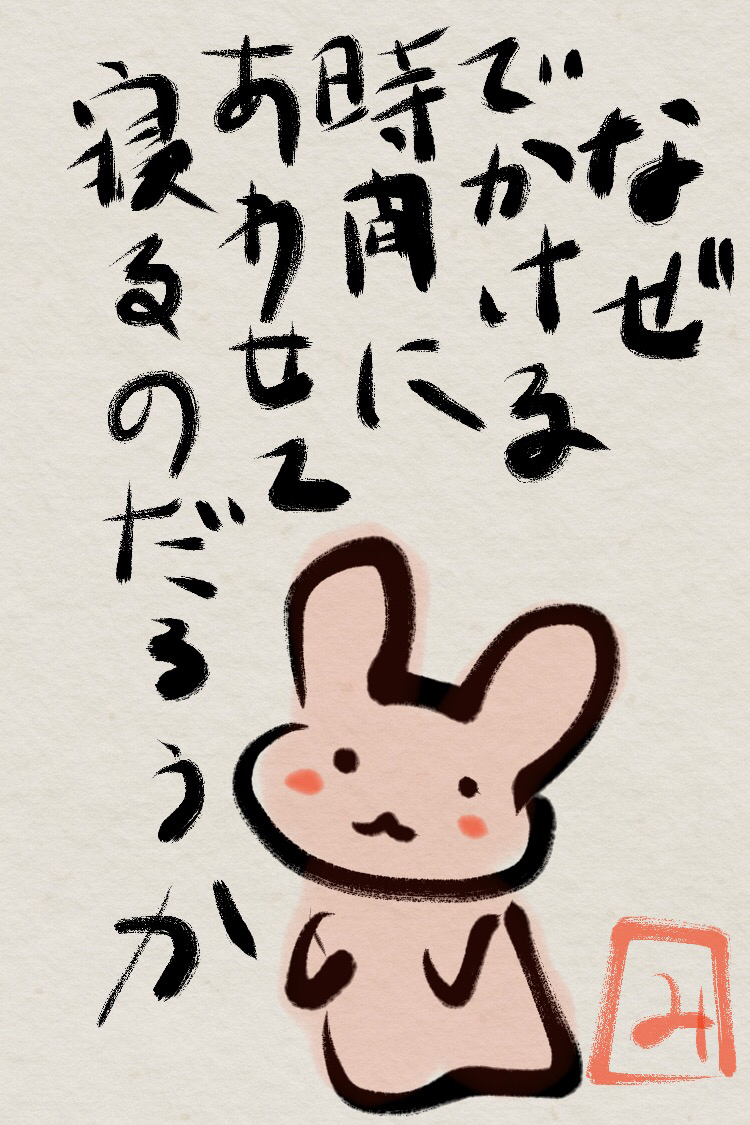 なぜ
でかける
時間に
あわせて
寝るのだろうか
み